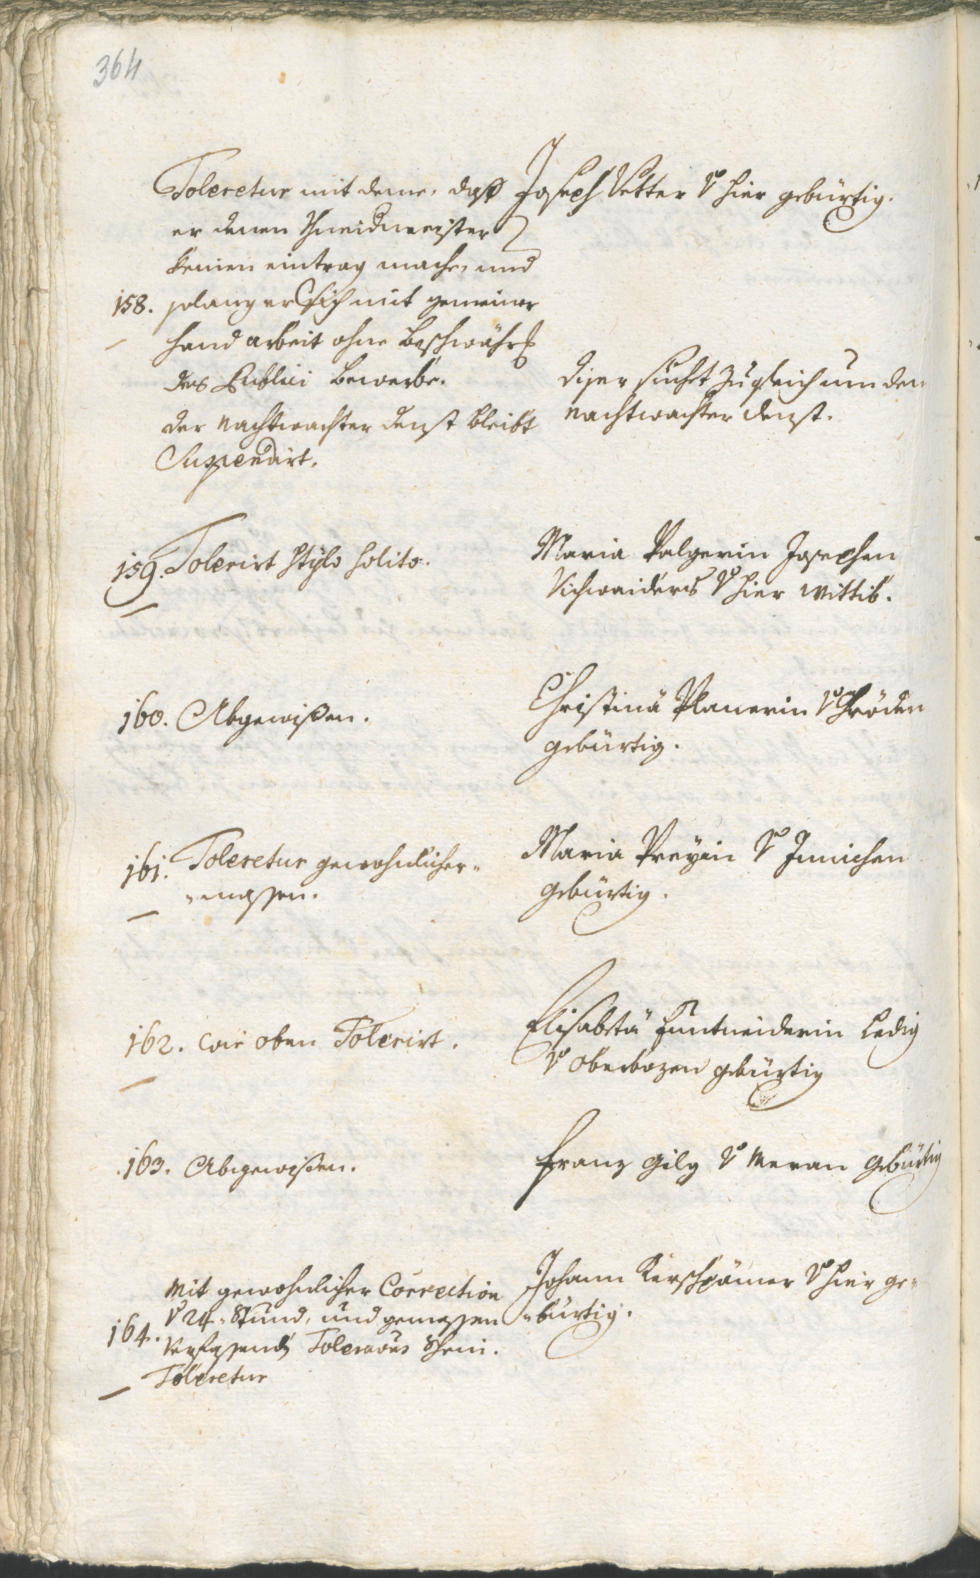 364
Toleretur mit deme, daß
er denen Schneidmeister
keinen eintrag mache, und
158. solang er sich mit gemeiner
hand arbeit ohne Beschwährß
des Publici Bewerbe.
der Nachtwachter dienst bleibt
Suspendirt.
Joseph Vetter v hier gebürtig.
diser sucht zugleich um den
Nachtwachter dienst.
159. Tolerirt stylo solito.
Maria Valgerin Josephen
Vichwaiders v hier wittib.
160. Abgewißen.
Christina Planerin v Gröden
gebürtig.
161. Toleretur gewohnlicher-
-massen.
Maria Preyin v Innichen
gebürtig.
162. wie oben Tolerirt.
Elisabeta ledig
v oberbozen gebürtig
163. Abgewisen.
Franz Gilg v Meran gebürtig
Mit gewohnlicher Correction
v 24. Stund, und gemessen
164. verfassends Schein.
Toleretur
Johann Kerschpämer v hier ge-
-bürtig.